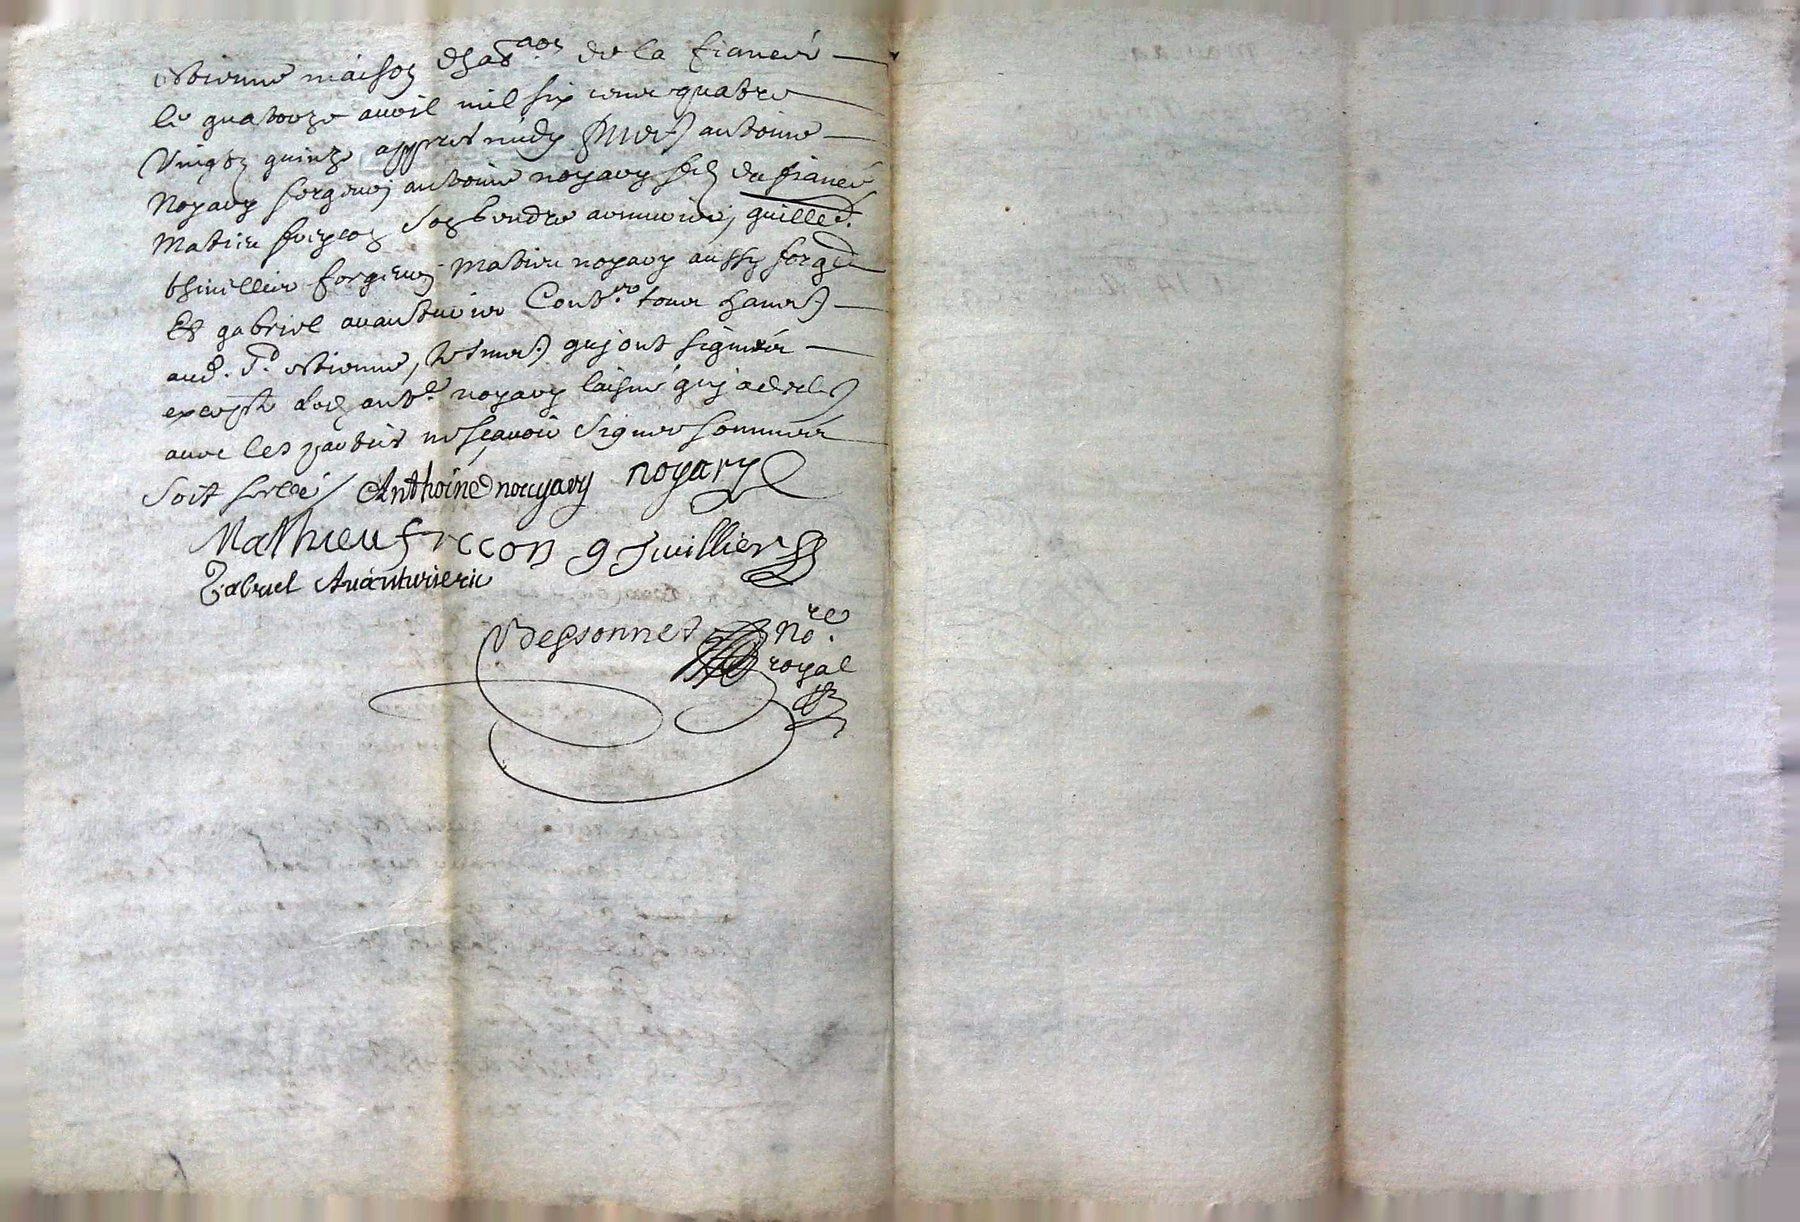 estienne maison d'ha᷉t.aon de la fiancée
le quatorze avril mil six cent quatre
vingtz quinze appres midy p̃ntz antoine
Noyary forgeur antoine noyary filz du fiancé
Matieu frecon son gendre armurier, guille.
thivillier forgeur matieu noyary aussy forgeur
Et gabriel avanturier tous
aud. st. estienne, tesmoings quj ont signéz
excepté led. ant.e noyary laisné quj a desclaré
avec les parties ne sçavoir signer sommée
soit scellé / Anthoine nouyary noyary
Mathieu frecon g thuillier
Gabriel Avanturier
Bessonnet no.re
royal